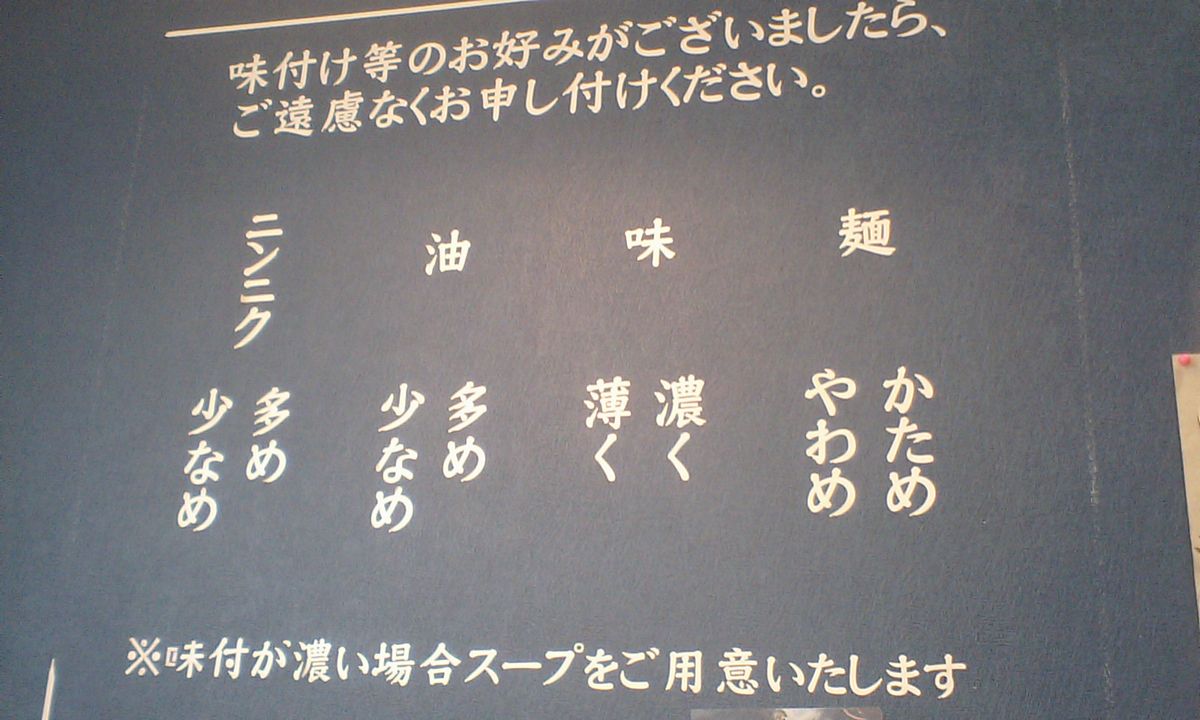 味付け等のお好みがございましたら、
ご遠慮なくお申し付けください。
麺
かため
やわめ
味
濃く
薄く
油
多め
少なめ
ニンニク
多め
少なめ
※味付が濃い場合スープをご用意いたします